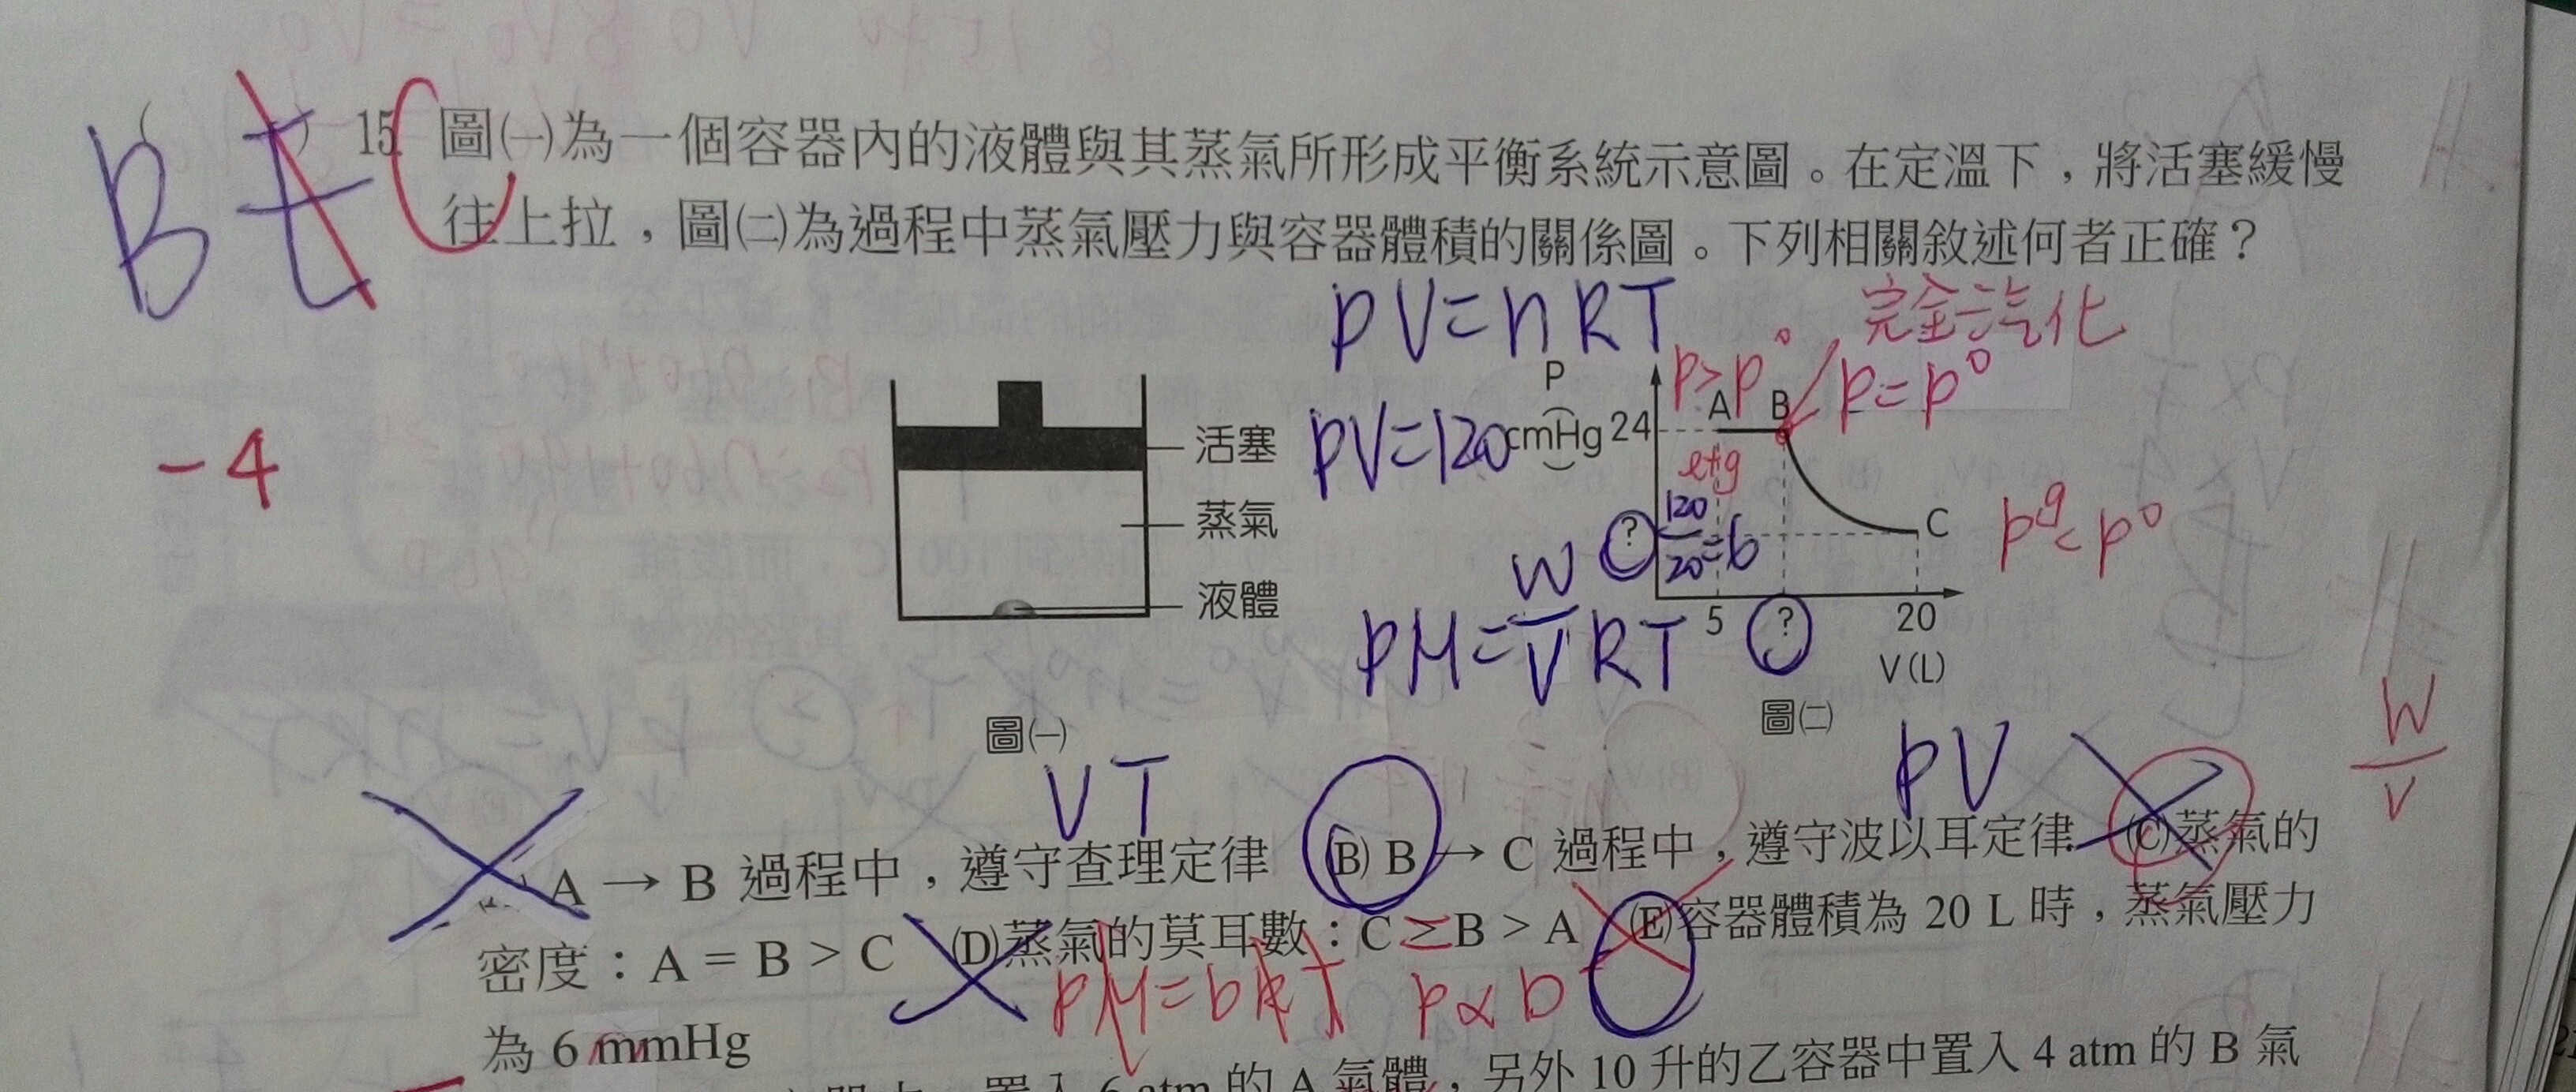 B E C 15. 圖㈠為一個容器內的液體與其蒸氣所形成平衡系統示意圖。在定溫下，將活塞緩慢
往上拉，圖㈡為過程中蒸氣壓力與容器體積的關係圖。下列相關敘述何者正確？
-4
活塞
蒸氣
液體
圖㈠
PV=nRT
PV=120
PM=W/V RT
完全汽化
P>P°
P=P°
P
(cmHg)
24
A
B
l+g
?
120/20=6
C
Pg<P°
5
?
20
V(L)
圖㈡
W/V
VT
PV
A → B 過程中，遵守查理定律 (B) B → C 過程中，遵守波以耳定律 (C)蒸氣的
密度：A = B > C (D)蒸氣的莫耳數：C > B > A (E)容器體積為 20 L 時，蒸氣壓力
PM=DRT P∝D
為 6 mmHg
6 atm 的 A 氣體，另外 10 升的乙容器中置入 4 atm 的 B 氣